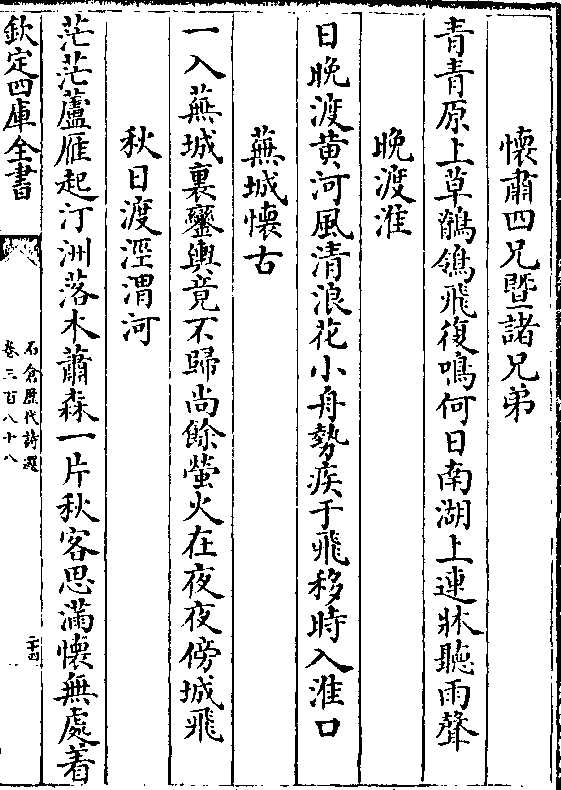 懷肅四兄暨諸兄弟
青青原上草鶺鴒飛復鳴何日南湖上連牀聽雨聲
晚渡淮
日晚渡黄河風清浪花小舟勢疾于飛移時入淮口
蕪城懐古
一入蕪城裏鑾輿竟不歸尚餘螢火在夜夜傍城飛
秋日渡涇渭河
茫茫蘆雁起汀洲落木蕭森一片秋客思滿懐無處着
欽定四庫全書
石倉歷代詩選
卷三百八十八
二十四